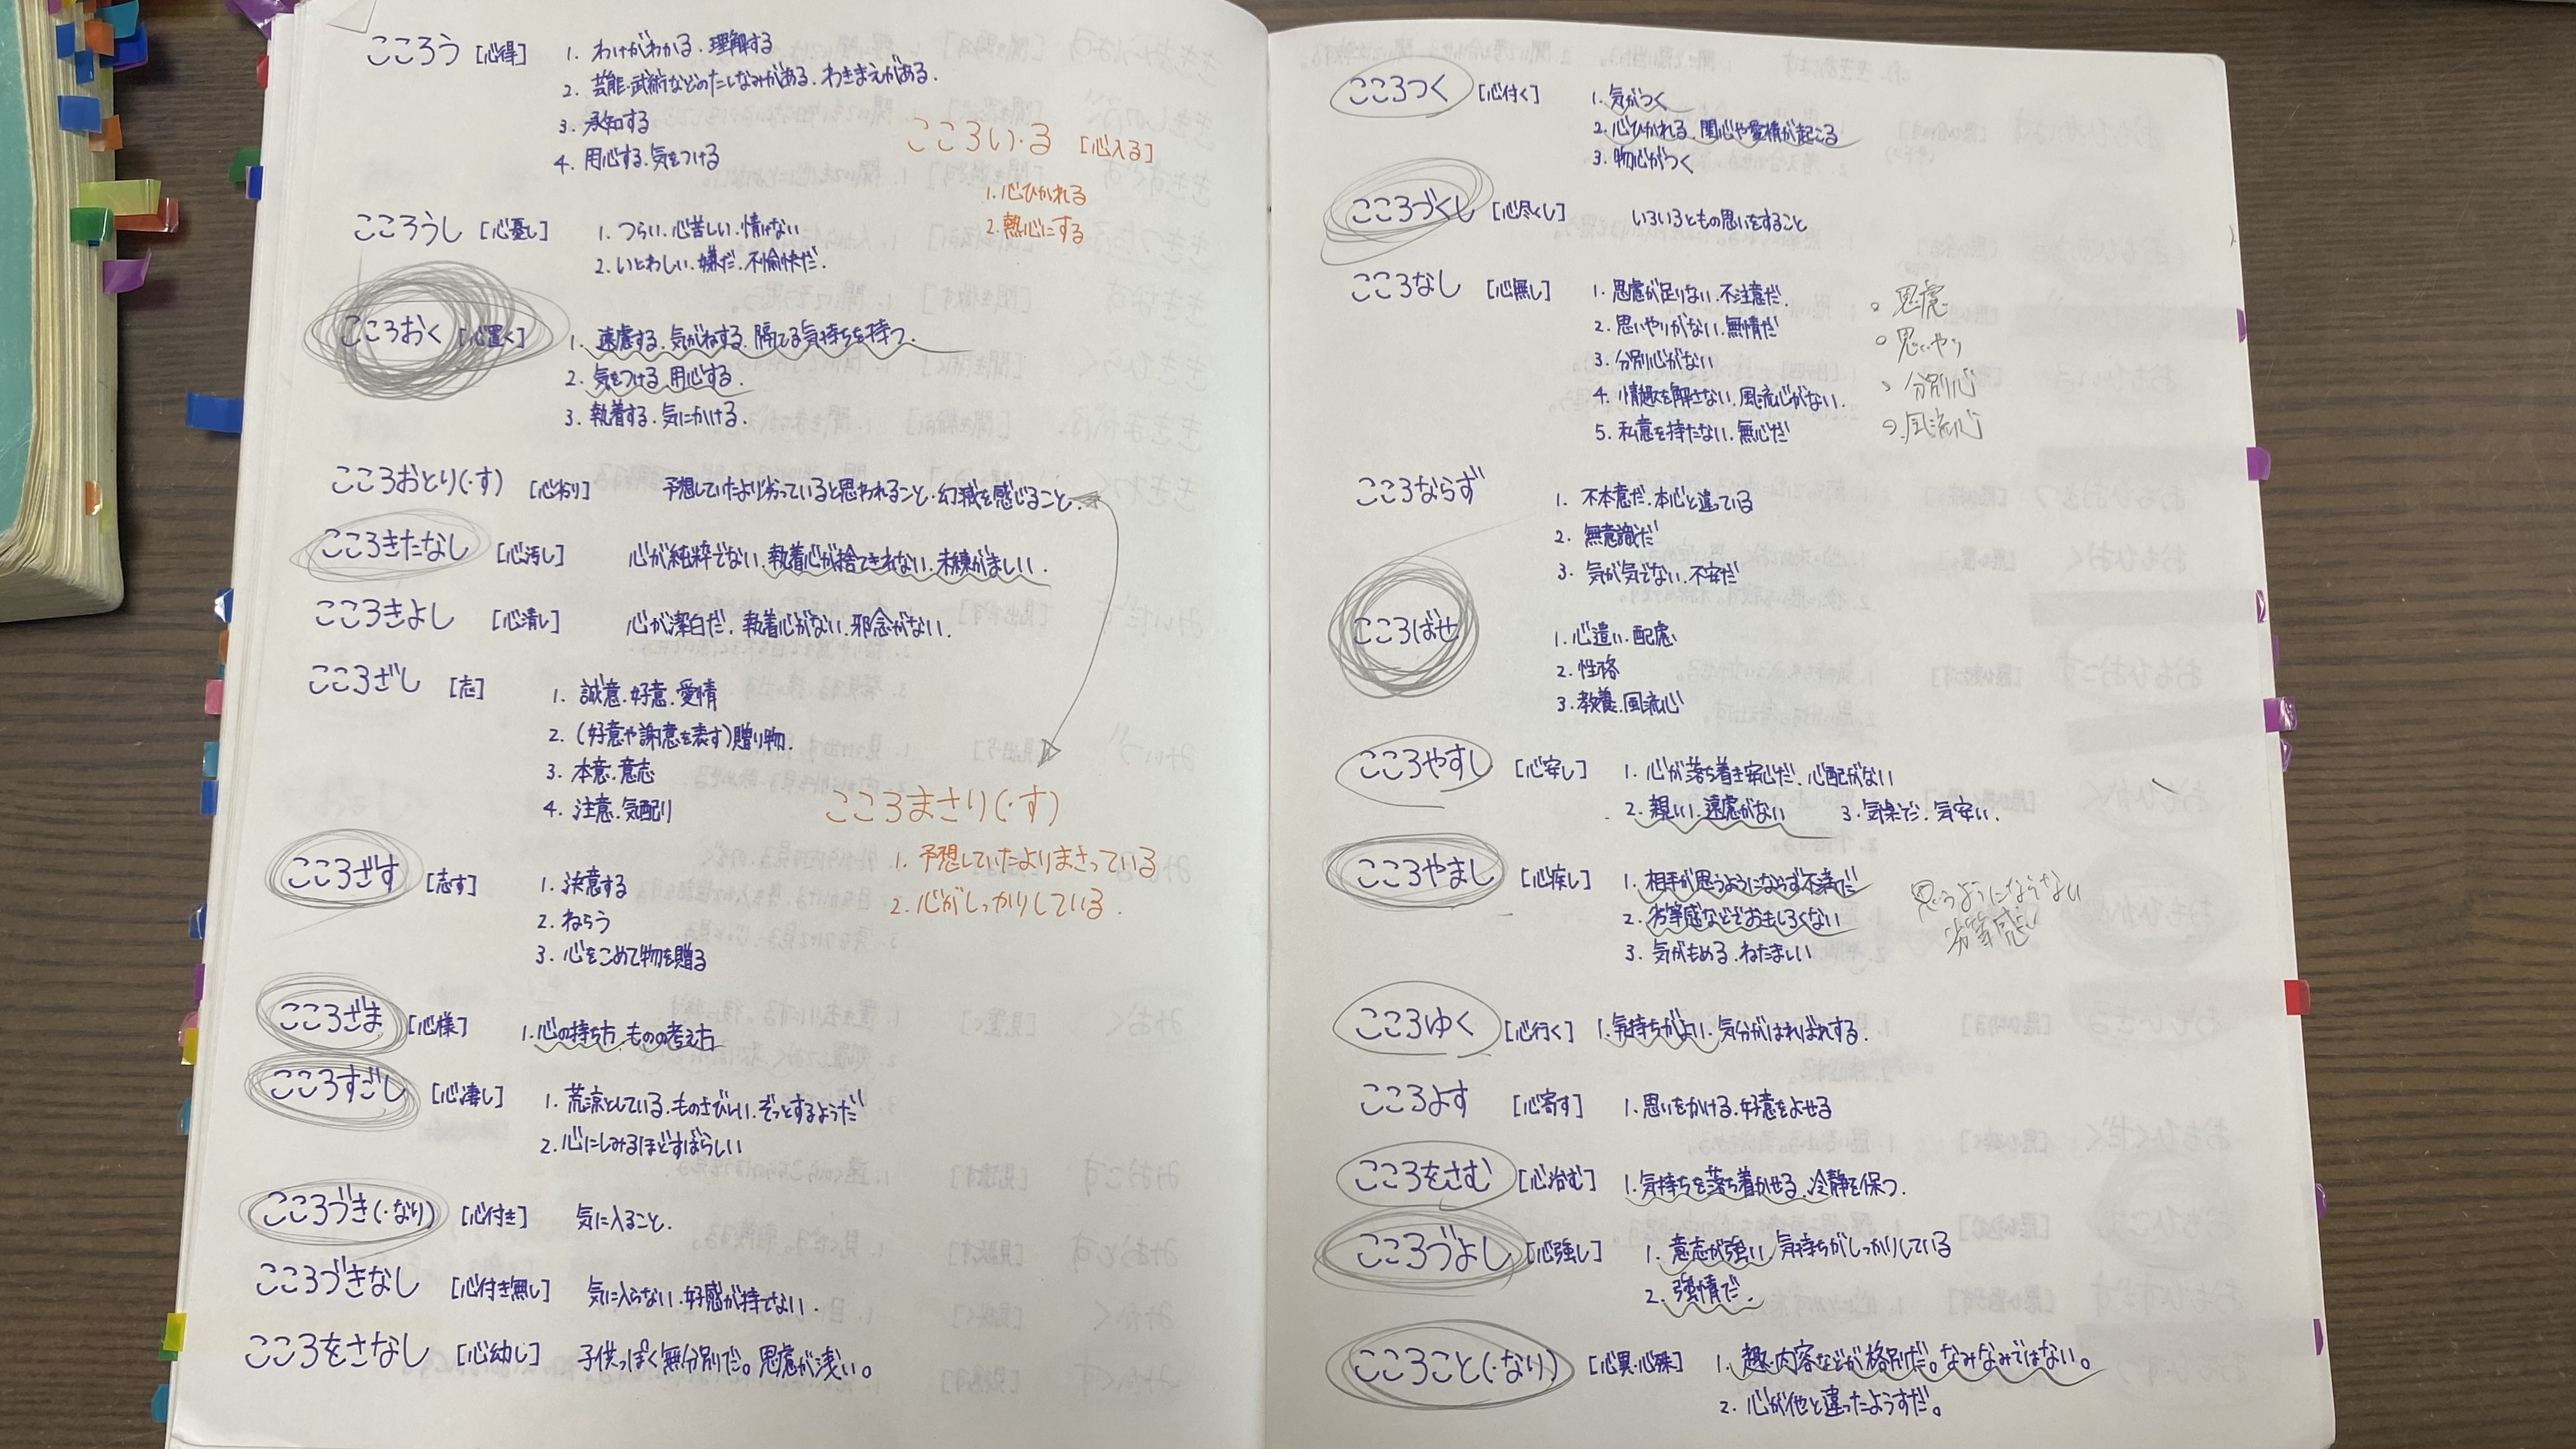 こころう [心得] 1. わけがわかる. 理解する
2. 芸能.武術などのたしなみがある. わきまえがある.
3. 承知する
4. 用心する.気をつける
こころい・る [心入る]
1. 心ひかれる
2. 熱心にする
こころうし [心憂し] 1. つらい.心苦しい.情けない
2. いとわしい.嫌だ.不愉快だ.
こころおく [心置く] 1. 遠慮する.気がねする.隔てる気持ちを持つ.
2. 気をつける 用心する.
3. 執着する.気にかける.
こころおとり(・す) [心劣り] 予想していたより劣っていると思われること.幻滅を感じること.
こころきたなし [心汚し] 心が純粋でない.執着心が捨てきれない.未練がましい.
こころきよし [心清し] 心が潔白だ.執着心がない.邪念がない.
こころざし [志] 1. 誠意.好意.愛情
2. (好意や謝意を表す)贈り物.
3. 本意.意志
4. 注意.気配り
こころまさり(・す)
1. 予想していたよりまさっている
2. 心がしっかりしている.
こころざす [志す] 1. 決意する
2. ねらう
3. 心をこめて物を贈る
こころざま [心様] 1.心の持ち方 ものの考え方
こころすごし [心凄し] 1. 荒涼としている.ものさびしい.ぞっとするようだ
2. 心にしみるほどすばらしい
こころづき(・なり) [心付き] 気に入ること.
こころづきなし [心付き無し] 気に入らない.好感が持てない.
こころをさなし [心幼し] 子供っぽく無分別だ。思慮が浅い。
こころつく [心付く] 1. 気がつく
2. 心ひかれる 関心や愛情が起こる
3. 物心がつく
こころづくし [心尽くし] いろいろともの思いをすること
こころなし [心無し] 1. 思慮が足りない.不注意だ.
2. 思いやりがない.無情だ
3. 分別心がない
4. 情趣を解さない.風流心がない.
5. 私意を持たない.無心だ
○ 思慮
○ 思いやり
○ 分別心
○ 風流心
こころならず 1. 不本意だ.本心と違っている
2. 無意識だ
3. 気が気でない.不安だ
こころばせ 1. 心遣い.配慮
2. 性格
3. 教養.風流心
こころやすし [心安し] 1. 心が落ち着き安心だ.心配がない
2. 親しい.遠慮がない 3. 気楽だ.気安い.
こころやまし [心疾し] 1. 相手が思うようにならず不満だ
2. 劣等感などでおもしろくない
3. 気がもめる.ねたましい
思うようにならない
劣等感
こころゆく [心行く] 1. 気持ちがよい.気分がはればれする.
こころよす [心寄す] 1. 思いをかける.好意をよせる
こころをさむ [心治む] 1. 気持ちを落ち着かせる.冷静を保つ.
こころづよし [心強し] 1. 意志が強い 気持ちがしっかりしている
2. 強情だ.
こころこと(・なり) [心異・心殊] 1. 趣.内容などが格別だ。なみなみではない。
2. 心が他と違ったようすだ。